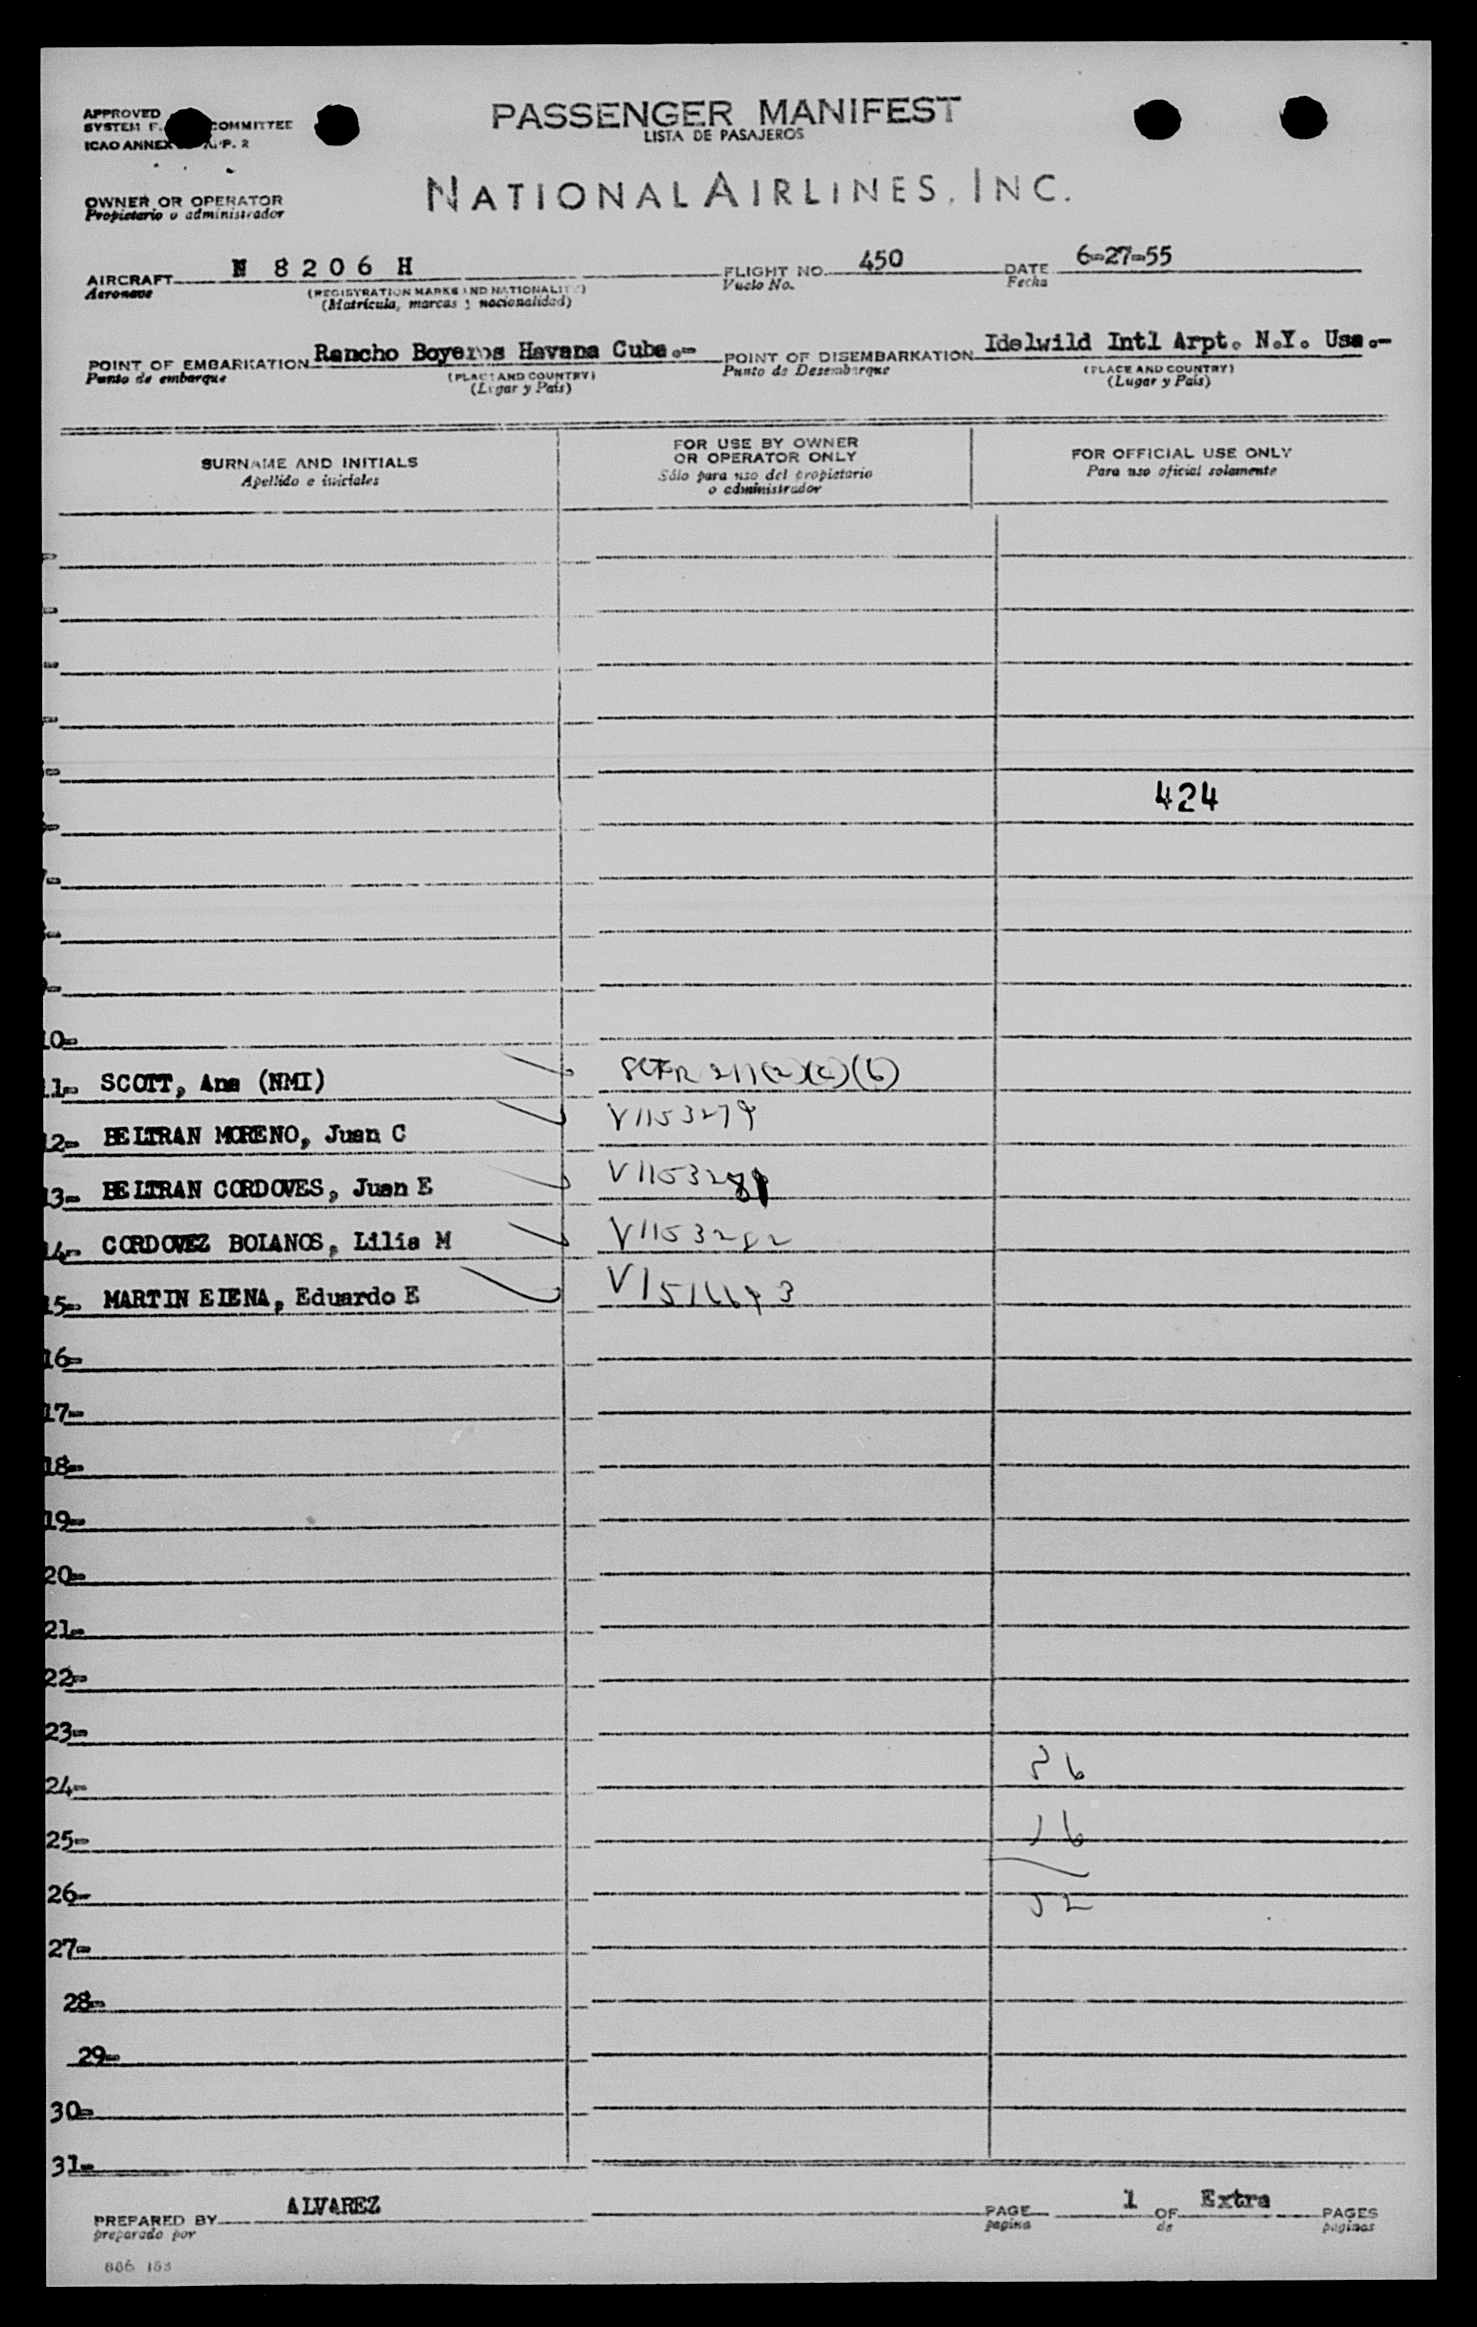 PASSENGER MANIFEST
LISTA DE PASAJEROS
APPROVED
SYSTEM F. COMMITTEE
ICAO ANNEX P. 2
NATIONAL AIRLINES, INC.
OWNER OR OPERATOR
Propietario o administrador
AIRCRAFT N 8206 H FLIGHT NO. 450 DATE 6-27-55
Aeronave (REGISTRATION MARKS AND NATIONALITY) Vuelo No. Fecha
(Matrícula, marcas y nacionalidad)
POINT OF EMBARKATION Rancho Boyeros Havana Cuba.- POINT OF DISEMBARKATION Idelwild Intl Arpt. N.Y. Usa.-
Punto de embarque (PLACE AND COUNTRY) Punto de Desembarque (PLACE AND COUNTRY)
(Lugar y País) (Lugar y País)
SURNAME AND INITIALS FOR USE BY OWNER OR OPERATOR ONLY FOR OFFICIAL USE ONLY
Apellido e iniciales Sólo para uso del propietario o administrador Para uso oficial solamente
424
10-
11- SCOTT, Ana (NMI) 8CFR 211(2)(c)(6)
12- BELTRAN MORENO, Juan C V1153279
13- BELTRAN CORDOVES, Juan E
14- CORDOVEZ BOLANOS, Lilia M V1153282
15- MARTIN ELENA, Eduardo E
16-
17-
18-
19-
20-
21-
22-
23-
24- 36
25- 16
26- 52
27-
28-
29-
30-
31-
PREPARED BY ALVAREZ PAGE 1 OF Extra PAGES
preparado por pagina de paginas